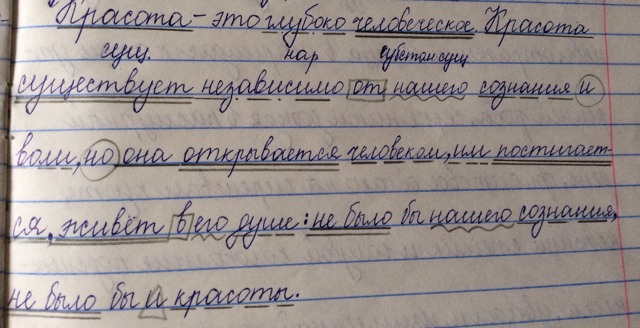 Красота – это глубоко человеческое. Красота
сущ. нар субстан сущ
существует независимо от нашего сознания и
воли, но она открывается человеком, им постигает-
ся, живёт в его душе: не было бы нашего сознания,
не было бы и красоты.